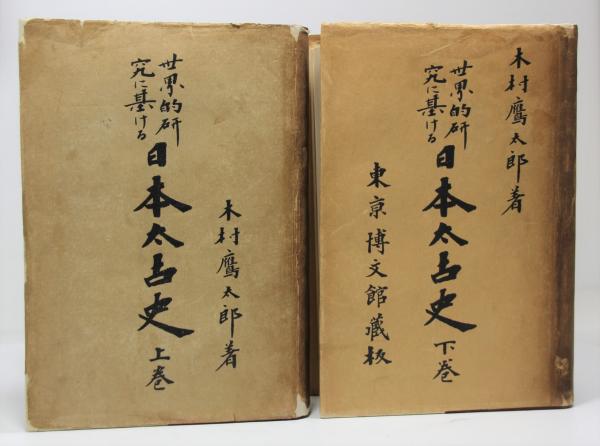 世界的研
究に基ける
日本太古史
上巻
木村鷹太郎著
木村鷹太郎著
世界的研
究に基ける
日本太古史
下巻
東京博文館蔵板